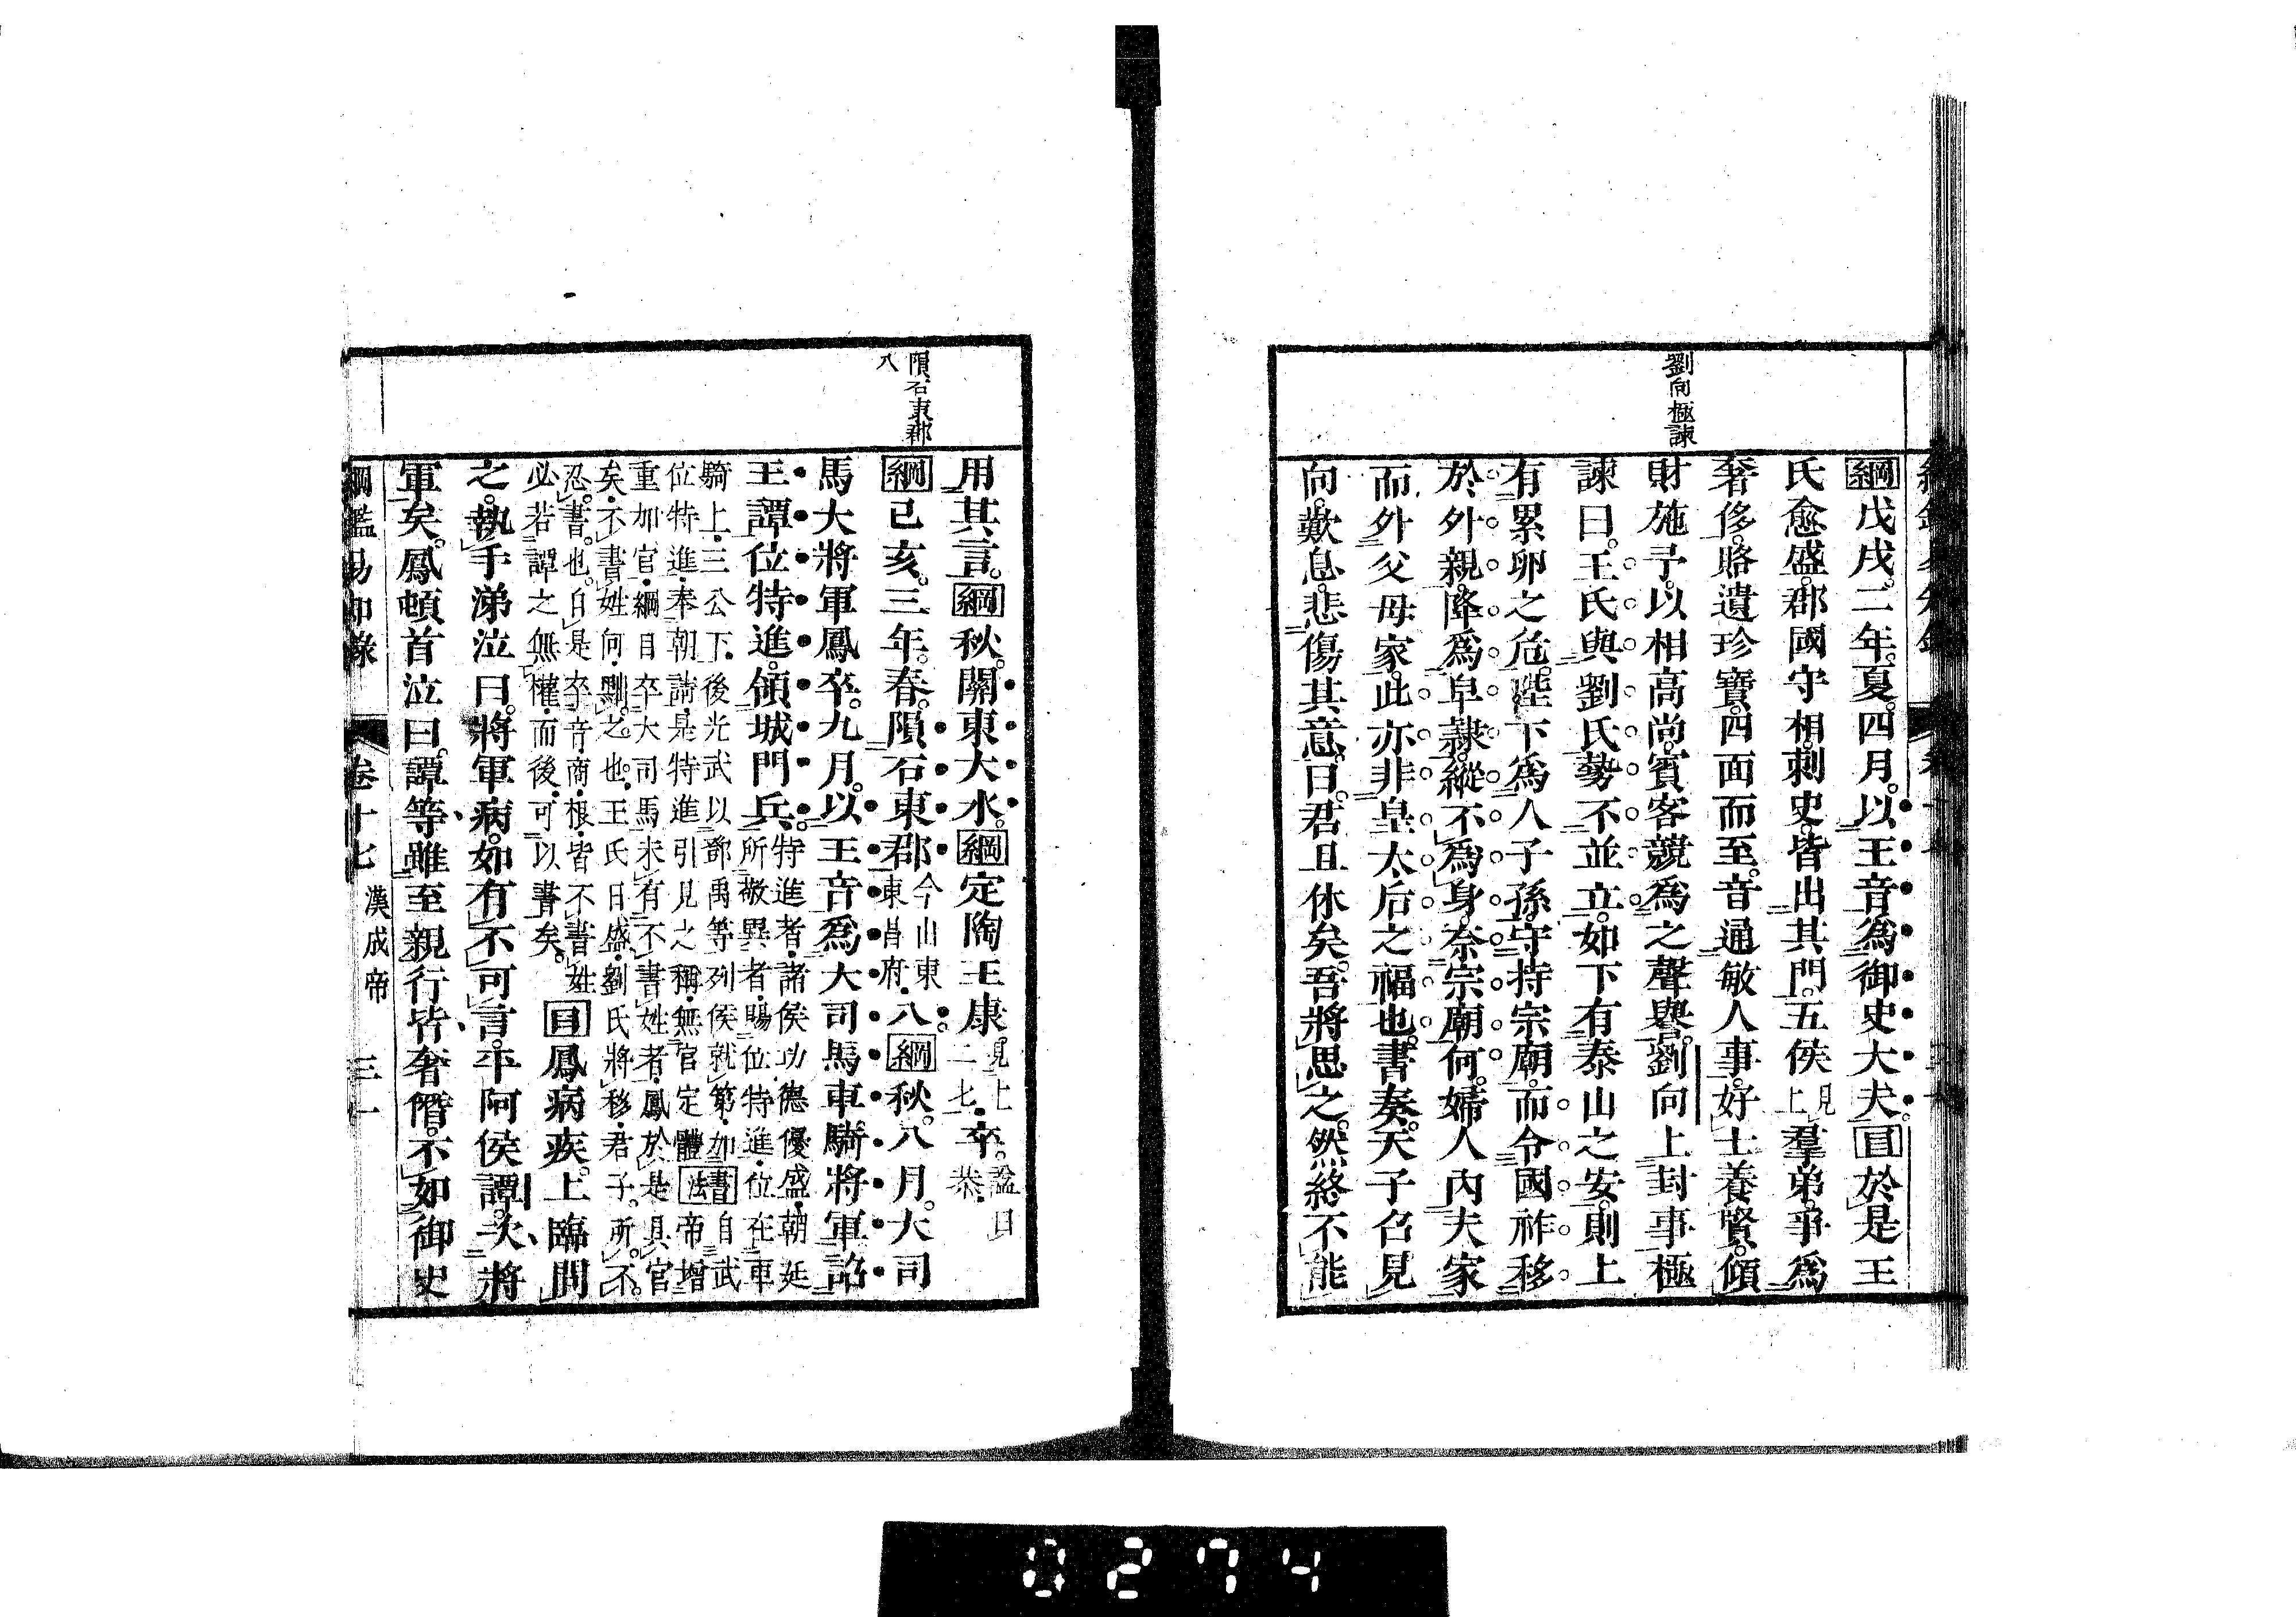 劉向極諫
綱戊戌。二年。夏。四月。以王音爲御史大夫。目於是王
氏愈盛。郡國守相。刺史。皆出其門。五侯見上羣弟。爭爲
奢侈。賂遺珍寶。四面而至。音通敏人事。好士養賢。傾
財施予。以相高尚。賓客競爲之聲譽。劉向上封事極
諫曰。王氏與劉氏勢不並立。如下有泰山之安。則上
有累卵之危。陛下爲人子孫。守持宗廟。而令國祚移
於外親。降爲皁隷。縱不爲身。奈宗廟何。婦人內夫家
而外父母家。此亦非皇太后之福也。書奏。天子召見
向。歎息。悲傷其意。曰。君且休矣。吾將思之。然終不能
隕石東郡
八
用其言。綱秋。關東大水。綱定陶王康。見上二七。卒。謚曰恭。
綱己亥。三年。春。隕石東郡今山東東昌府。八。綱秋。八月。大司
馬大將軍鳳卒。九月。以王音爲大司馬車騎將軍。詔
王譚位特進。領城門兵。特進者。諸侯功德優盛。朝廷
所敬異者。賜位特進。位在車
騎上。三公下。後光武以鄧禹等列侯就第。加書自武
位特進。奉朝請。是特進引見之稱。無官定體法帝增
重加官。綱目卒大司馬。未有不書姓者。鳳於是具官
矣。不書姓何。削之也。王氏日盛。劉氏將移。君子所不
忍書也。自是卒音商根。皆不書姓
必若譚之無權。而後可以書矣。目鳳病疾。上臨問
之。執手涕泣曰。將軍病。如有不可言。平阿侯譚。次將
軍矣。鳳頓首泣曰。譚等雖至親。行皆奢僭。不如御史
綱鑑易知錄 卷十七 漢成帝 三一
0274